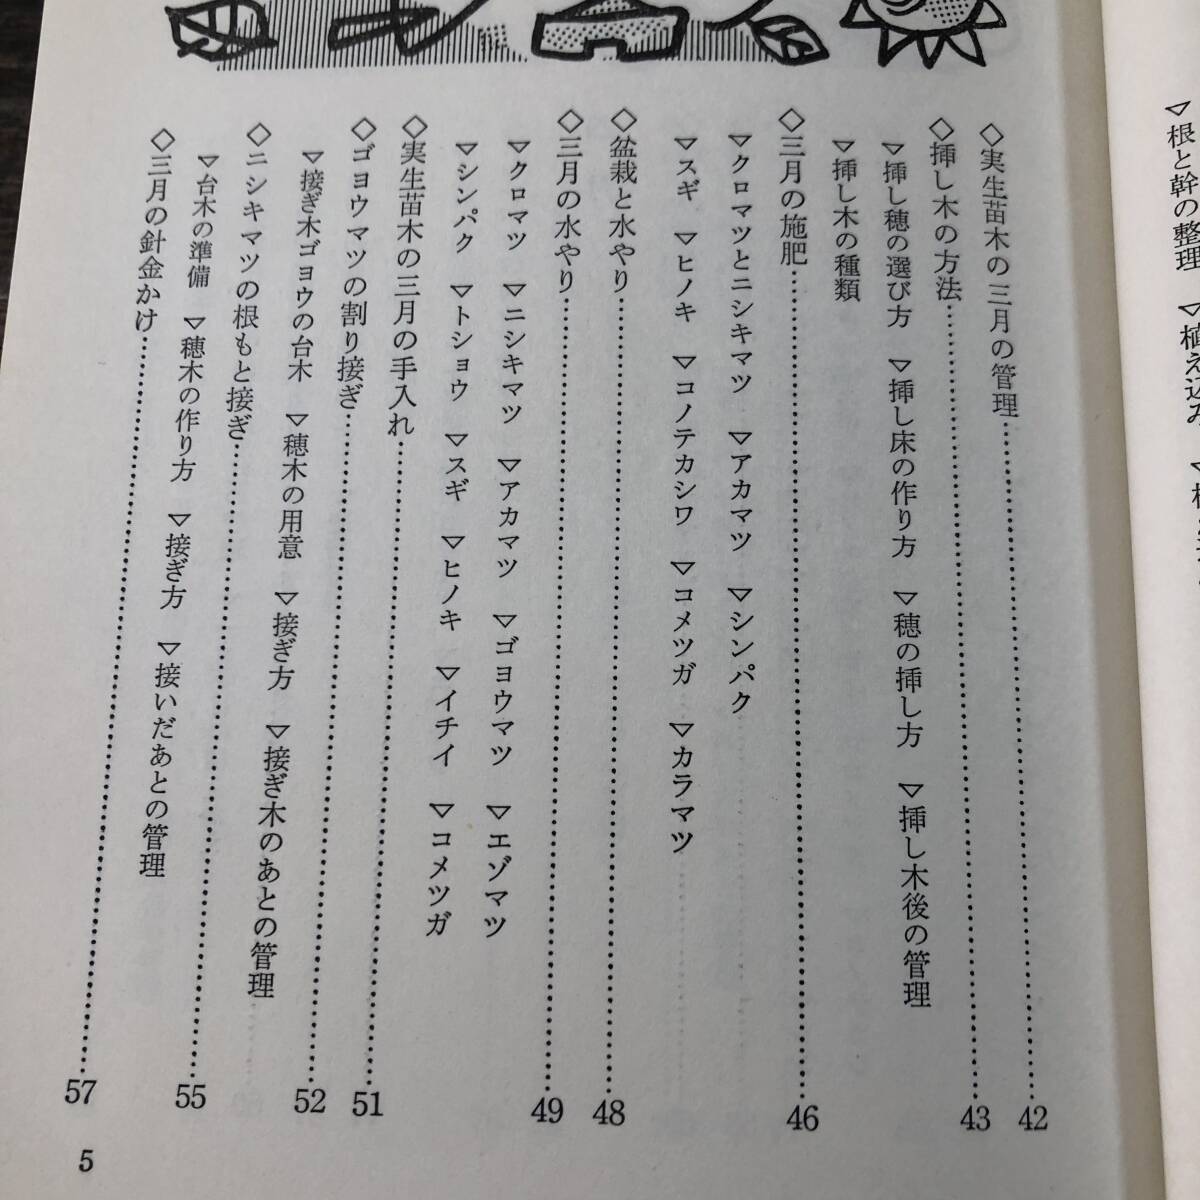 ▽根と幹の整理　▽植え込み
◇実生苗木の三月の管理……42
◇挿し木の方法……43
▽挿し穂の選び方　▽挿し床の作り方　▽穂の挿し方　▽挿し木後の管理
▽挿し木の種類
◇三月の施肥……46
▽クロマツとニシキマツ　▽アカマツ　▽シンパク
▽スギ　▽ヒノキ　▽コノテカシワ　▽コメツガ　▽カラマツ
◇盆栽と水やり……48
◇三月の水やり……49
▽クロマツ　▽ニシキマツ　▽アカマツ　▽ゴヨウマツ　▽エゾマツ
▽シンパク　▽トショウ　▽スギ　▽ヒノキ　▽イチイ　▽コメツガ
◇実生苗木の三月の手入れ……51
◇ゴヨウマツの割り接ぎ……52
▽接ぎ木ゴヨウの台木　▽穂木の用意　▽接ぎ方　▽接ぎ木のあとの管理
◇ニシキマツの根もと接ぎ……55
▽台木の準備　▽穂木の作り方　▽接ぎ方　▽接いだあとの管理
◇三月の針金かけ……57
5